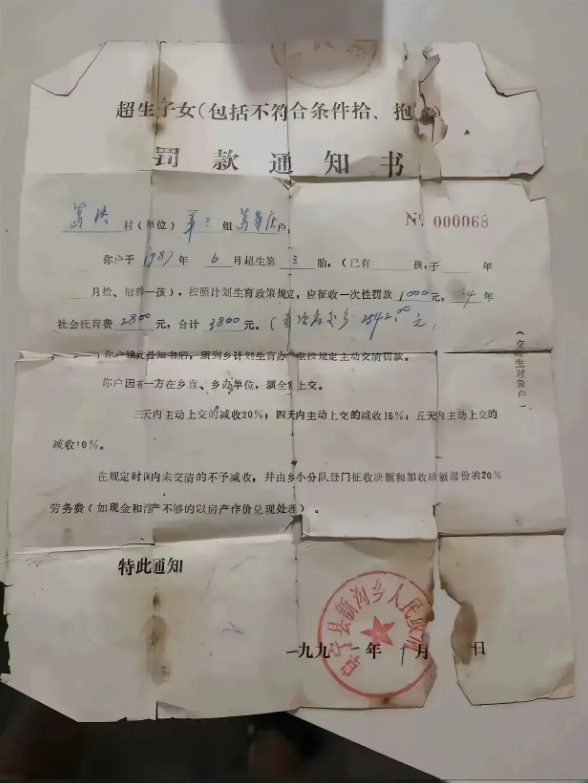 超生子女(包括不符合条件拾、抱
罚款通知书
村(单位) 第 组 户,
№ 000068
你户于1987年6月超生第3胎,(已有 孩,于 年
月拾、抱养一孩),按照计划生育政策规定,应征收一次性罚款1000元, 年
社会抚育费2800元,合计3800元。( 2542.00元,
你户接此通知书后,须到乡计划生育办 按规定主动交清罚款。
你户因有一方在乡直、乡办单位,须全 上交。
三天内主动上交的减收20%;四天内主动上交的减收15%;五天内主动上交的
减收10%。
在规定时间内未交清的不予减收,并由乡小分队登门征收缺额和加收缺额部份的20%
劳务费(如现金和浮产不够的以房产作价兑现处理)。
特此通知
县新沟乡人民政府
一九九 年 月 日